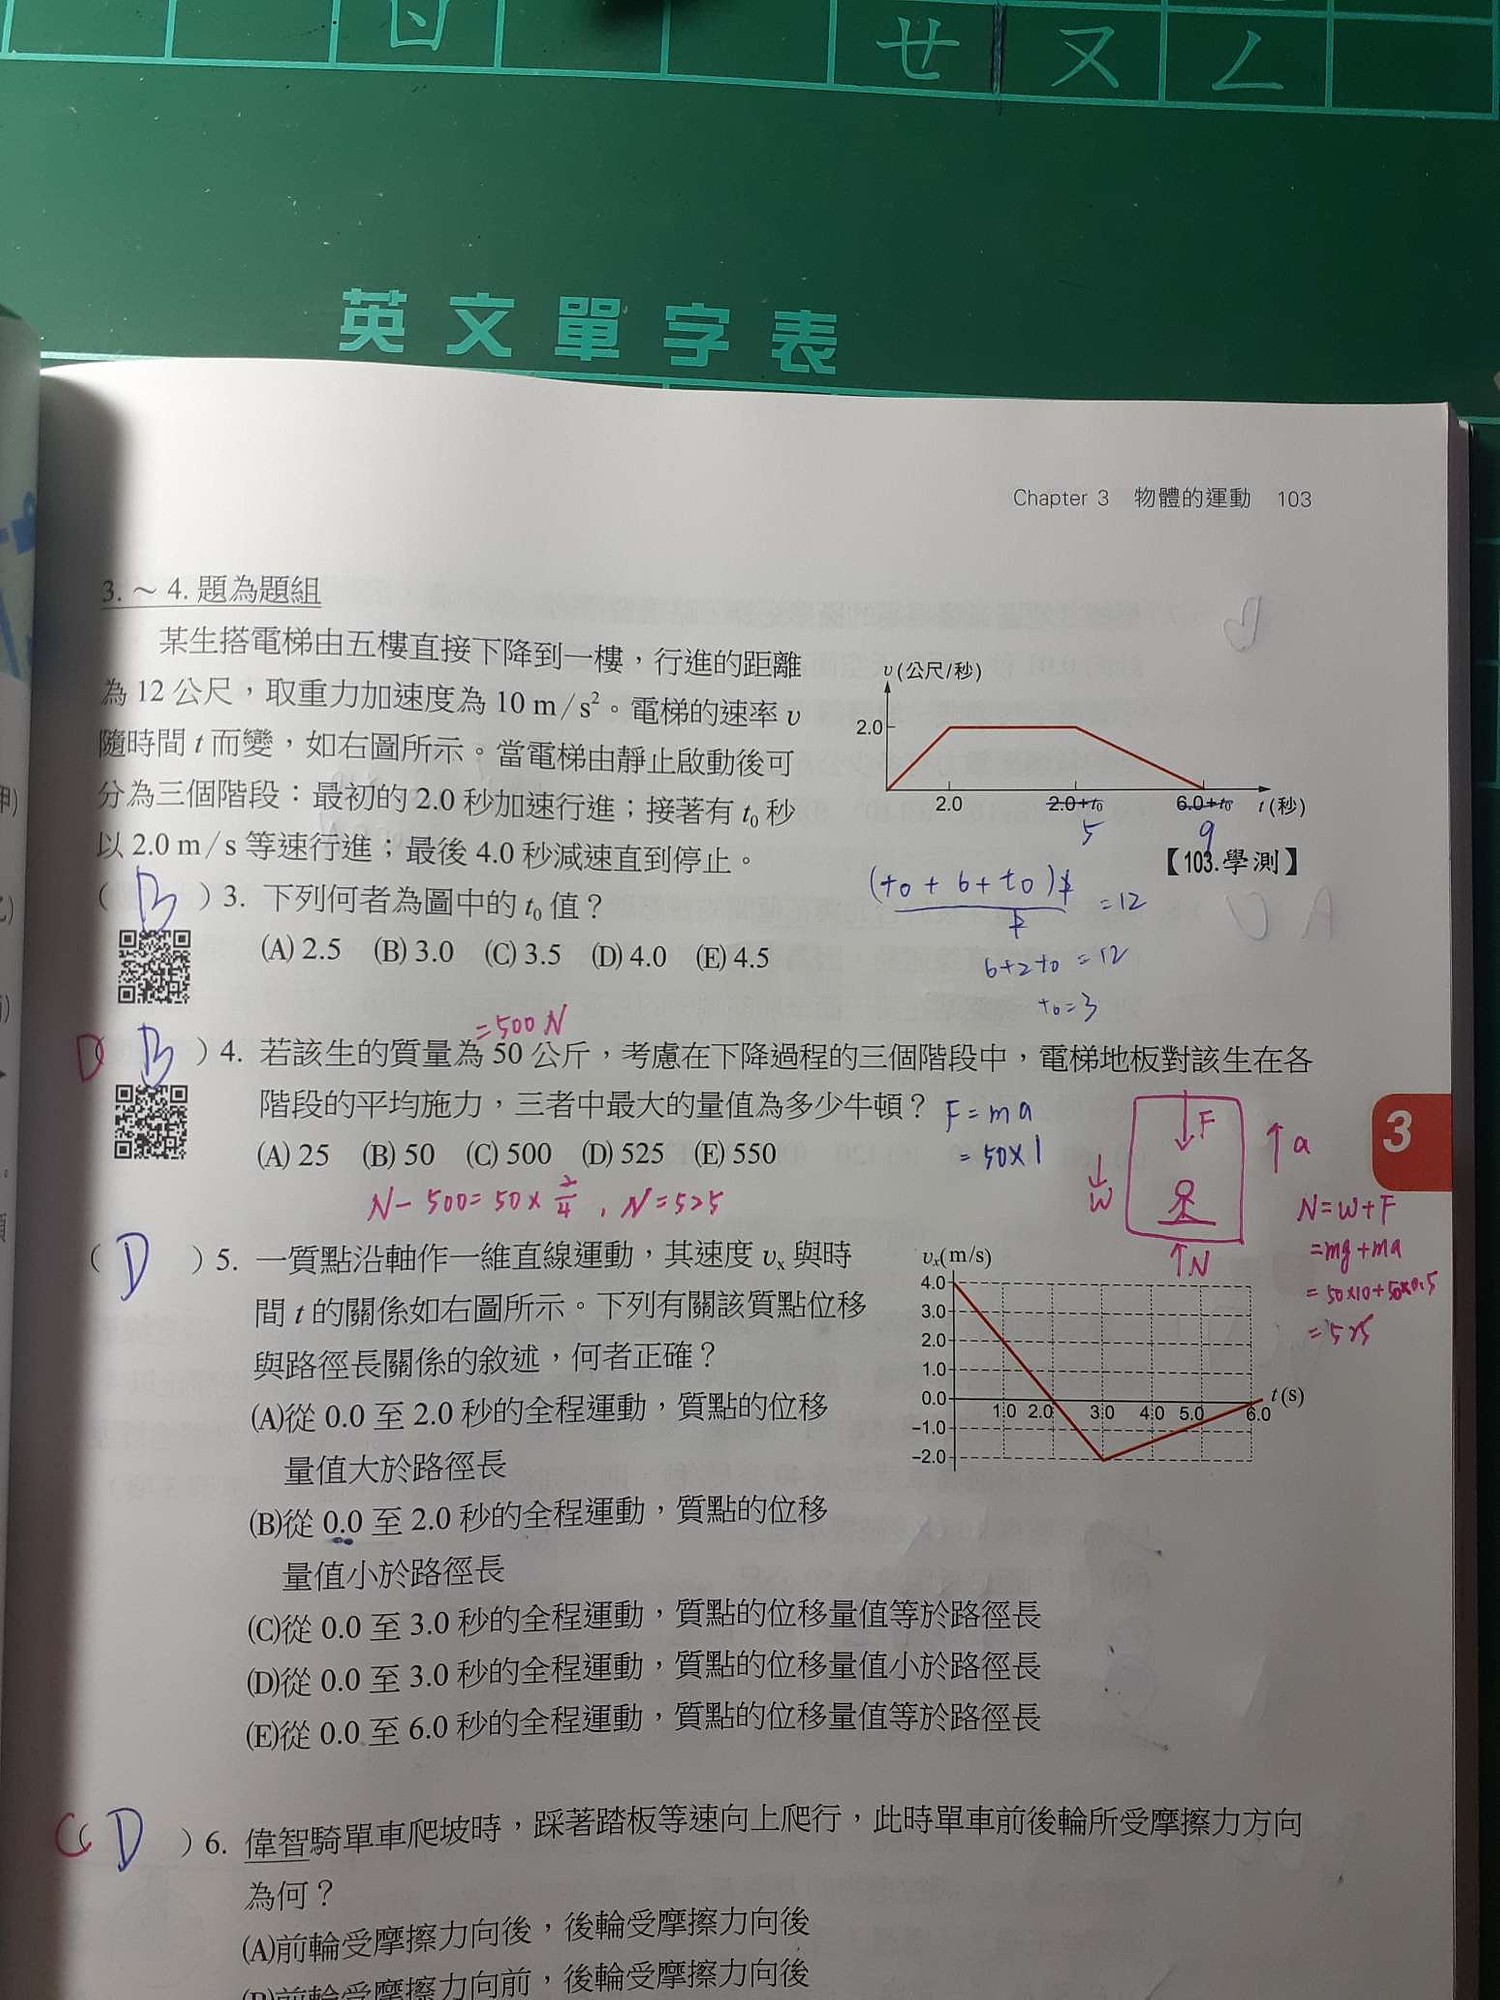 ㄩ ㄝ ㄡ ㄥ
英文單字表
Chapter 3 物體的運動 103
3.～4.題為題組
某生搭電梯由五樓直接下降到一樓，行進的距離
為 12 公尺，取重力加速度為 10 m/s²。電梯的速率 υ
隨時間 t 而變，如右圖所示。當電梯由靜止啟動後可
分為三個階段：最初的 2.0 秒加速行進；接著有 t₀ 秒
以 2.0 m/s 等速行進；最後 4.0 秒減速直到停止。
υ(公尺/秒)
2.0
2.0 2.0+t₀ 6.0+t₀ t(秒)
5 9
【103.學測】
( B )3. 下列何者為圖中的 t₀ 值？
(A) 2.5 (B) 3.0 (C) 3.5 (D) 4.0 (E) 4.5
(t₀+6+t₀)2/2 =12
6+2t₀=12
t₀=3
=500N
D B )4. 若該生的質量為 50 公斤，考慮在下降過程的三個階段中，電梯地板對該生在各
階段的平均施力，三者中最大的量值為多少牛頓？
(A) 25 (B) 50 (C) 500 (D) 525 (E) 550
F=ma
=50×1
N-500=50×2/4，N=525
F
a
W
N
N=W+F
=mg+ma
=50×10+50×0.5
=525
3
( D )5. 一質點沿軸作一維直線運動，其速度 υₓ 與時
間 t 的關係如右圖所示。下列有關該質點位移
與路徑長關係的敘述，何者正確？
(A)從 0.0 至 2.0 秒的全程運動，質點的位移
量值大於路徑長
(B)從 0.0 至 2.0 秒的全程運動，質點的位移
量值小於路徑長
(C)從 0.0 至 3.0 秒的全程運動，質點的位移量值等於路徑長
(D)從 0.0 至 3.0 秒的全程運動，質點的位移量值小於路徑長
(E)從 0.0 至 6.0 秒的全程運動，質點的位移量值等於路徑長
υₓ(m/s)
4.0
3.0
2.0
1.0
0.0
−1.0
−2.0
1.0 2.0 3.0 4.0 5.0 6.0 t(s)
C D )6. 偉智騎單車爬坡時，踩著踏板等速向上爬行，此時單車前後輪所受摩擦力方向
為何？
(A)前輪受摩擦力向後，後輪受摩擦力向後
(B)前輪受摩擦力向前，後輪受摩擦力向後